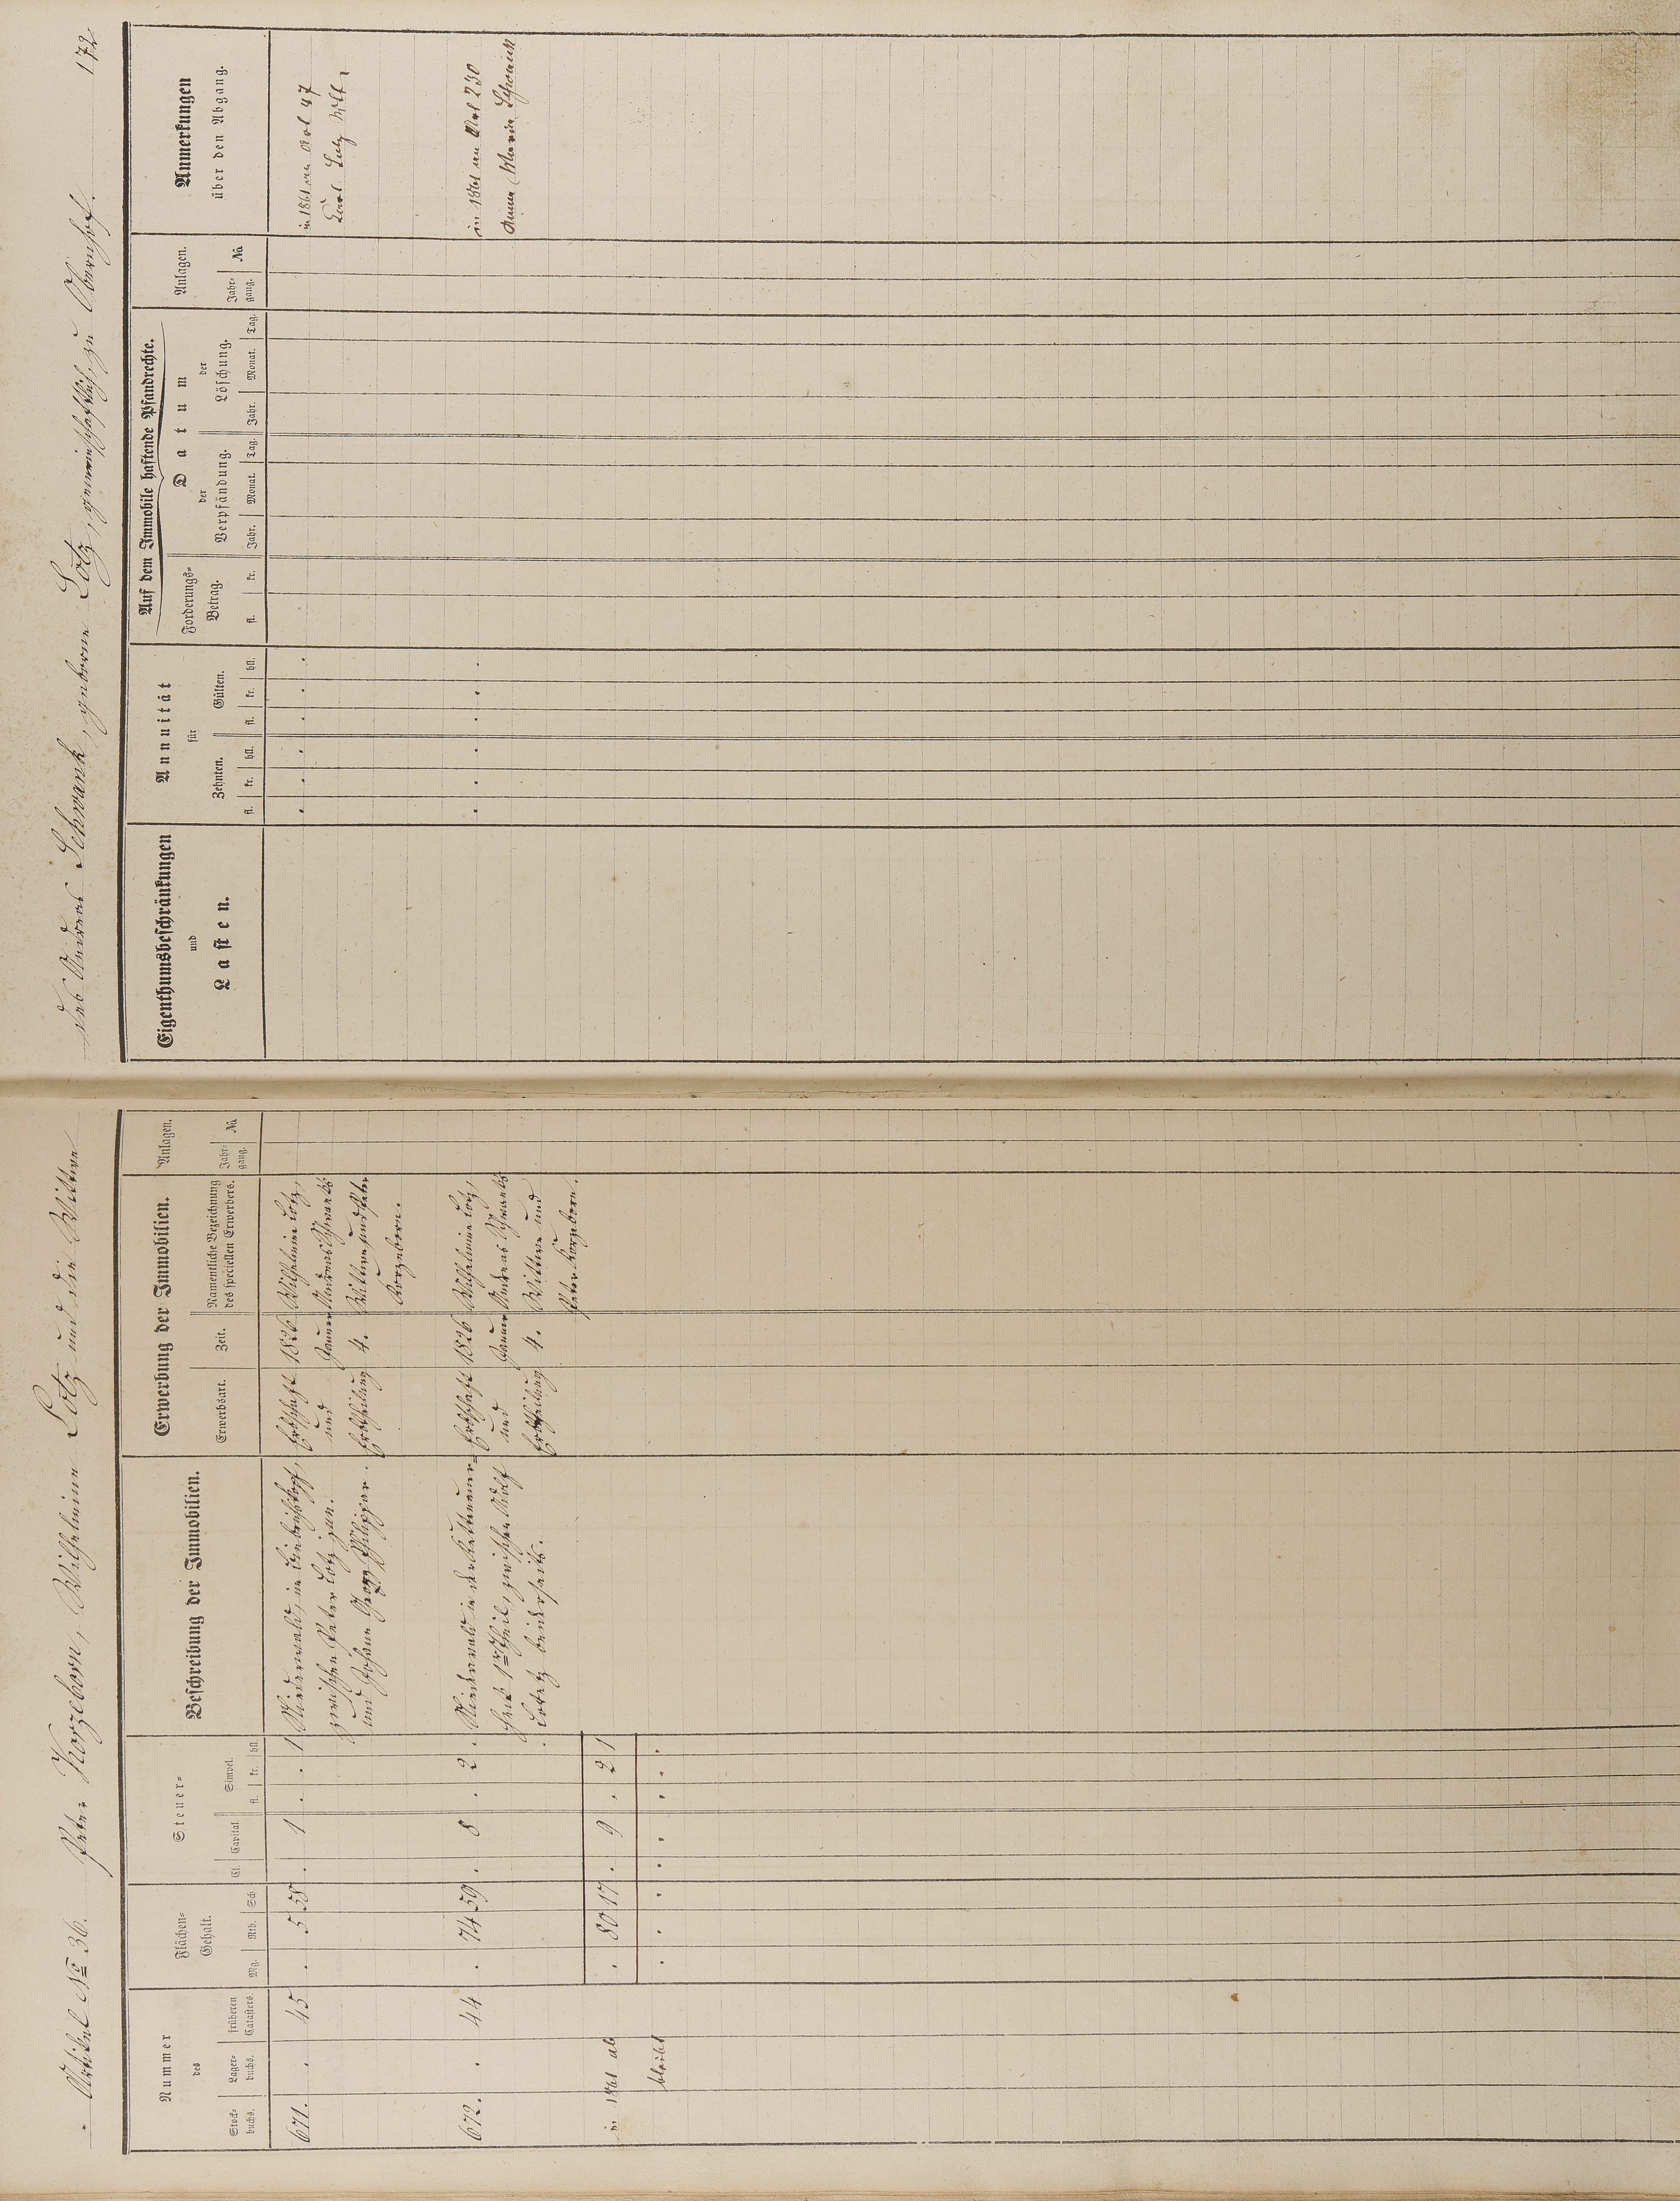 Artikel No 36. Peter Korzeborn, Wilhelmine Lotz und die Wittwe
des Andreas Schwank, geborne Lotz, gemeinschaftlich, zu Obernhof. 172
Nummer
des
Stock-
buchs.
Lager-
buchs.
früheren
Catasters.
Flächen-
Gehalt.
Mg. Rth. Sch.
Steuer-
Cl. Capital.
Simpel.
fl. kr. hll.
Beschreibung der Immobilien.
Erwerbung der Immobilien.
Erwerbsart.
Zeit.
Namentliche Bezeichnung
des speciellen Erwerbers.
Anlagen.
Jahr-
gang.
No
671. . 45 . 5 38 . 1 . . 1
Niederwald, in
zwischen Peter Lotz jun.
und Johann Georg Philippar.
Erbschaft
und
Erbtheilung
1826
Januar
4.
Wilhelmine Lotz,
Andreas Schwanks
Wittwe und Peter
Korzeborn.
672. . 44 . 74 59 . 8 . 2 .
Niederwald in der
Heck 1r Theil, zwischen Adolf
Lotz beiderseits.
Erbschaft
und
Erbtheilung
1826
Januar
4.
Wilhelmine Lotz,
Andreas Schwanks
Wittwe und
Peter Korzeborn.
in 1861 ab . 80 17 . 9 . 2 1
bleibt . . . . . . . .
Eigenthumsbeschränkungen
und
Lasten.
Annuität
für
Zehnten.
fl. kr. hll.
Gülten.
fl. kr. hll.
Auf dem Immobile haftende Pfandrechte.
Forderungs-
Betrag.
fl. kr.
Datum
der
Verpfändung.
Jahr. Monat. Tag.
der
Löschung.
Jahr. Monat. Tag.
Anlagen.
Jahr-
gang.
No
Anmerkungen
über den Abgang.
in 1861 an Art 47
in 1861 an Art 230
Anna Maria Schwank